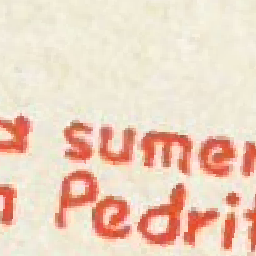 a sumer
n Pedrit